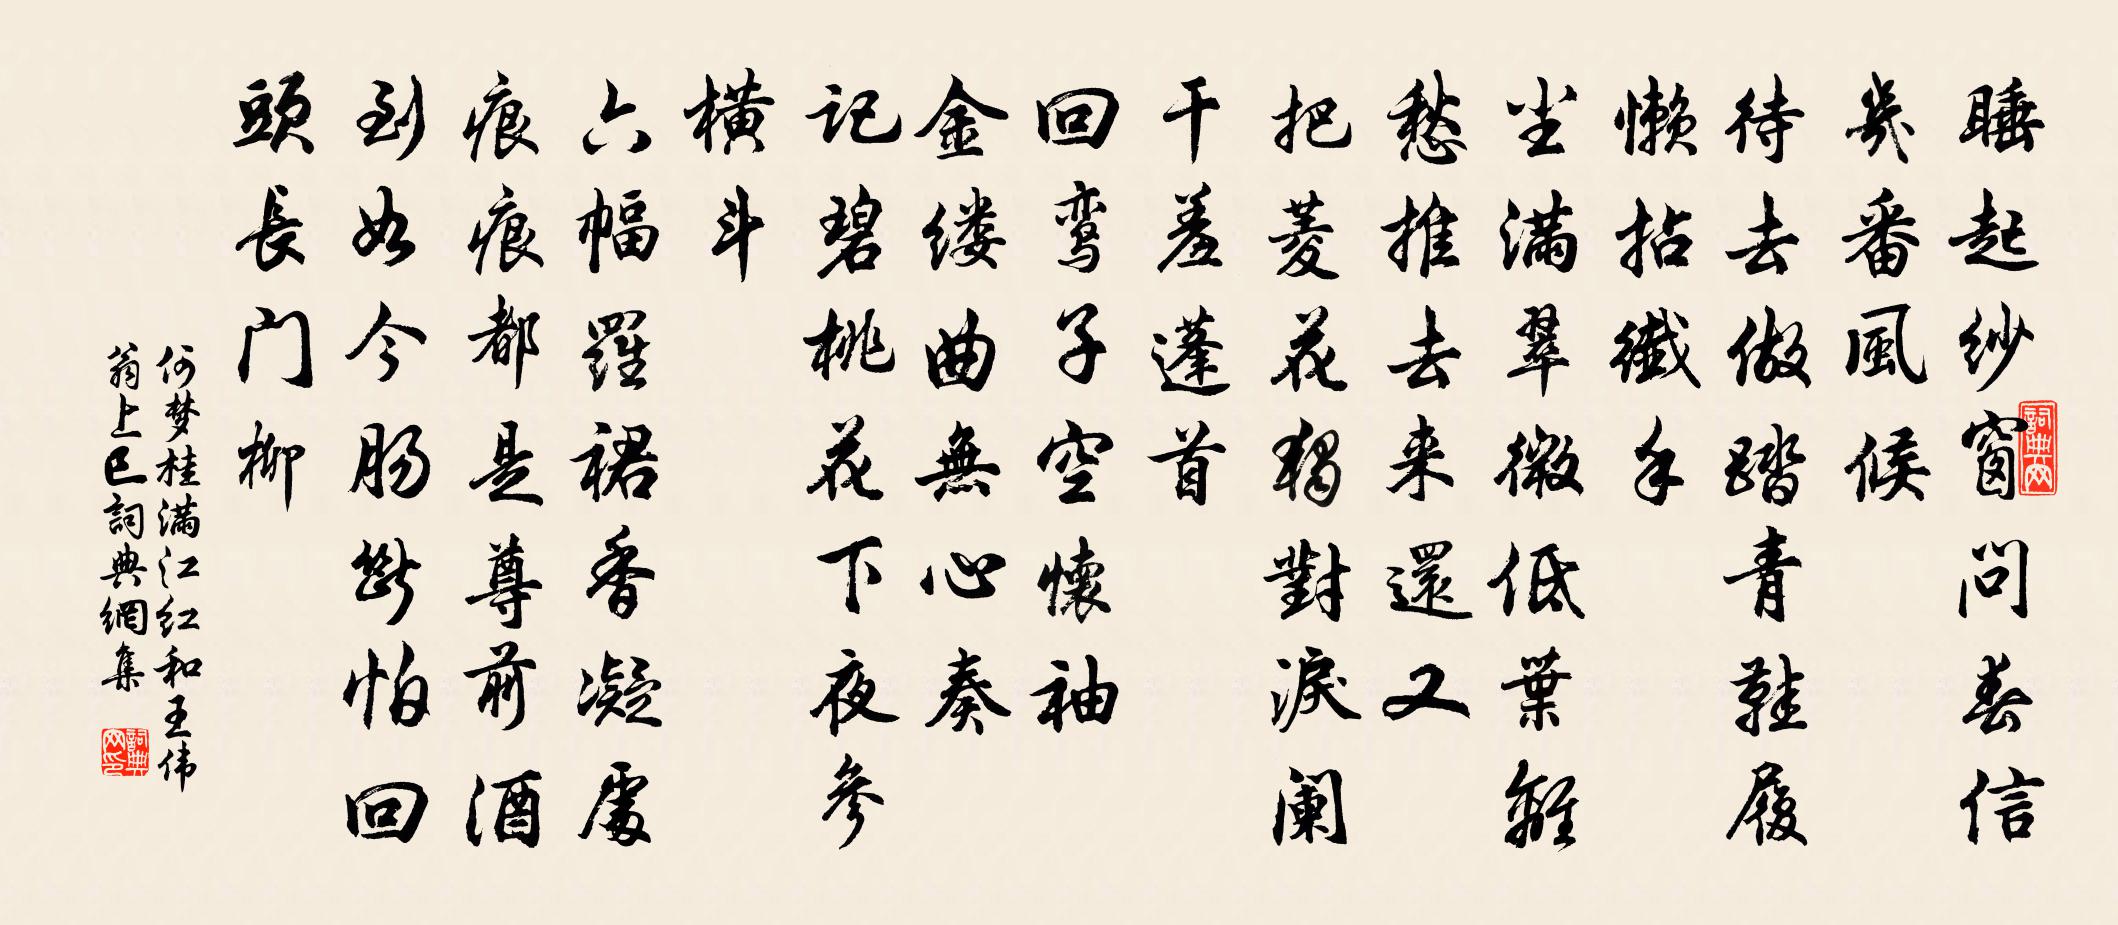 睡起紗窗問春信
幾番風候
待去做踏青鞋履
懶拈纖手
尘满翠微低葉離
愁推去来還又
把菱花獨對淚阑
干羞蓬首
回鸾子空懷袖
金缕曲無心奏
記碧桃花下夜參
橫斗
六幅羅裙香凝處
痕痕都是尊前酒
到如今肠斷怕回
頭長门柳
何梦桂满江红和王伟
翁上巳詞典網集
詞典网
詞典网印